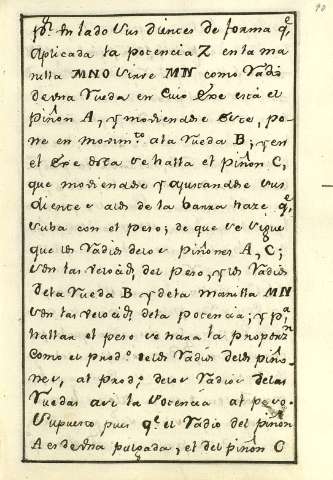 90
pr. un lado sus dientes de forma qe.
aplicada la potencia Z en la ma
nilla MNO sirve MN como Radio
de una Rueda en cuio Exe está el
piñon A, y moviendose este, po-
ne en movimto. a la Rueda B; y en
el Exe de esta se halla el piñon C,
que moviendose y ajustandose sus
dientes a los de la barra haze qe.
suba con el peso; de que se sigue
que los Radios de los piñones A, C;
son las velocids. del peso, y los Radios
de la Rueda B y de la manilla MN
son las velocids. de la potencia; y pa.
hallar el peso se hara la proporzn.
como el prodo. de los Radios de los piño-
nes, al prodo. de los Radios de las
Ruedas asi la Potencia al peso.
Supuesto pues qe. el Radio del piñon
A es de una pulgada, el del piñon C